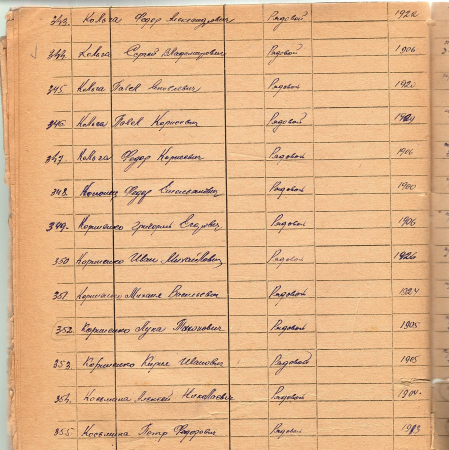 343. Кольга Федор Александрович Рядовой 1922
344. Кольга Сергей Владимирович Рядовой 1906
345 Кольга Павел Яковлевич Рядовой 1920
346 Кольга Павел Корнеевич Рядовой
347. Кольга Федор Корнеевич Рядовой 1906
348. Федор Рядовой 1900
349. Корниенко Григорий Егорович Рядовой 1906
350 Корниенко Иван Михайлович Рядовой 1926
351 Корниенко Михаил Васильевич Рядовой 1924
352. Корниенко Лука Рядовой 1905
353. Корниенко Кирил Иванович Рядовой 1905
354. Косьмина Алексей Николаевич Рядовой 1904
355 Косьмина Петр Федорович Рядовой 1913